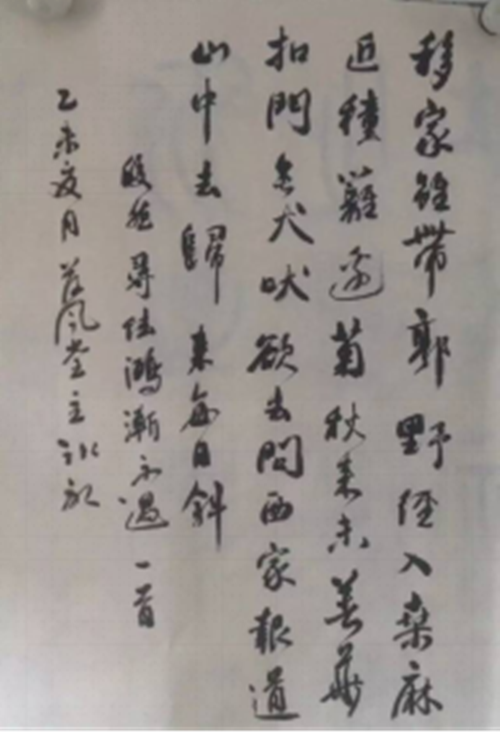 移家雖帶郭野徑入桑麻
近種籬邊菊秋来未著華
扣門無犬吠欲去問西家報道
山中去歸来每日斜
皎然尋陸鴻漸不遇一首
乙未夏月風堂主